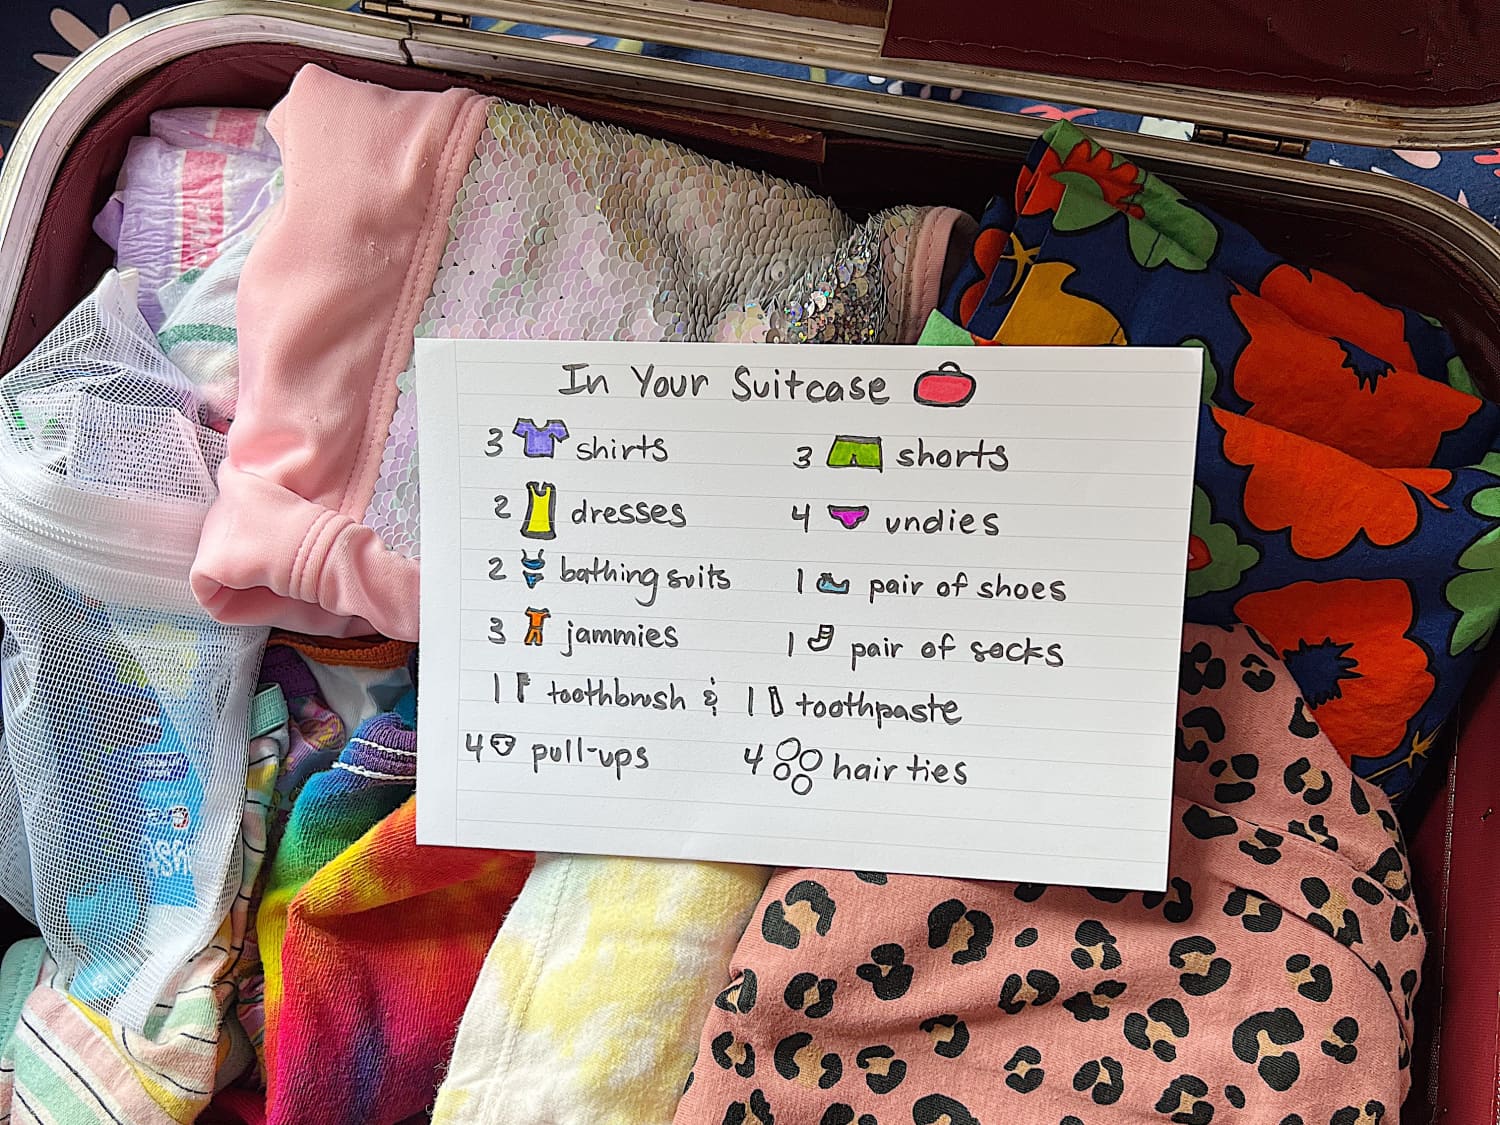 In Your Suitcase
3 shirts 3 shorts
2 dresses 4 undies
2 bathing suits 1 pair of shoes
3 jammies 1 pair of socks
1 toothbrush & 1 toothpaste
4 pull-ups 4 hair ties